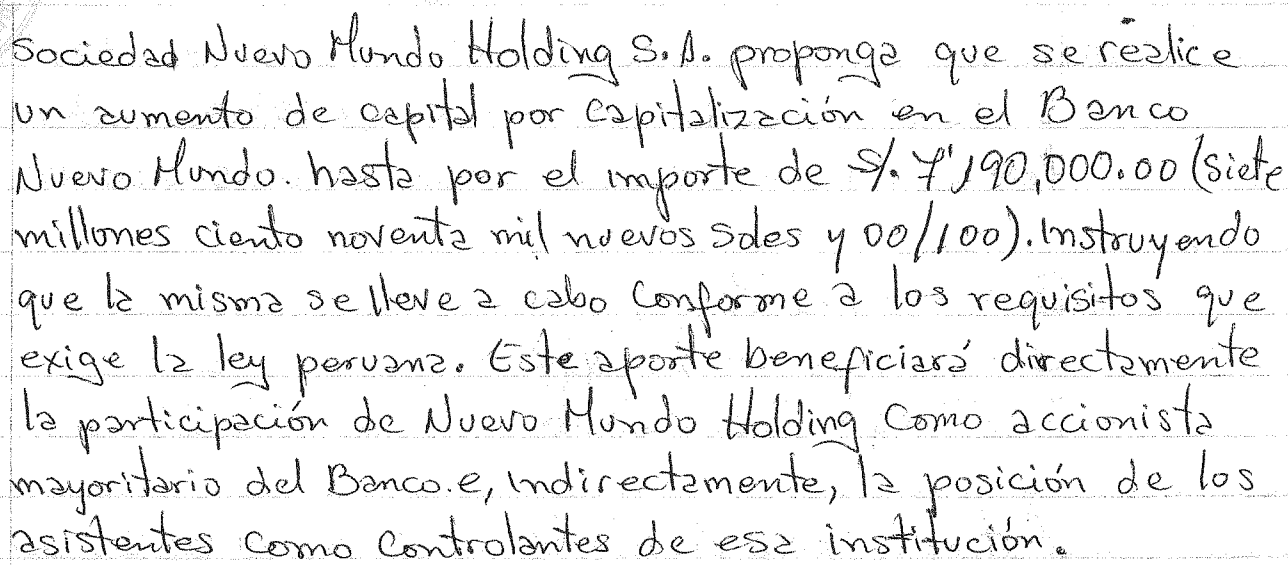 Sociedad Nuevo Mundo Holding S.A. proponga que se realice
un aumento de capital por capitalización en el Banco
Nuevo Mundo. hasta por el importe de S/. 7'190,000.00 (siete
millones ciento noventa mil nuevos soles y 00/100). Instruyendo
que la misma se lleve a cabo conforme a los requisitos que
exige la ley peruana. Este aporte beneficiará directamente
la participación de Nuevo Mundo Holding como accionista
mayoritario del Banco. e, indirectamente, la posición de los
asistentes como controlantes de esa institución.